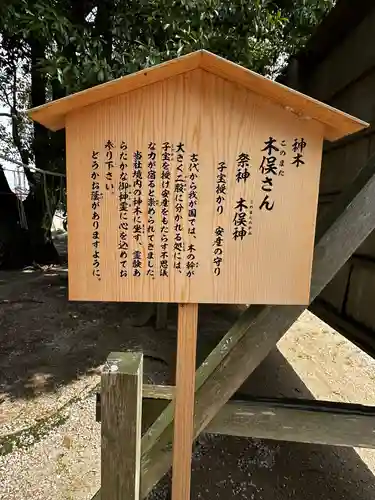 神木
木俣さん
このまた
祭神 木俣神
子宝授かり 安産の守り
古代から我が国では、木の幹が
大きく二股に分かれる処には、
子宝を授け安産をもたらす不思議
な力が宿ると崇められてきました。
当社境内の神木に坐す、霊験あ
らたかな御神霊に心を込めてお
参り下さい。
どうかお蔭がありますように。